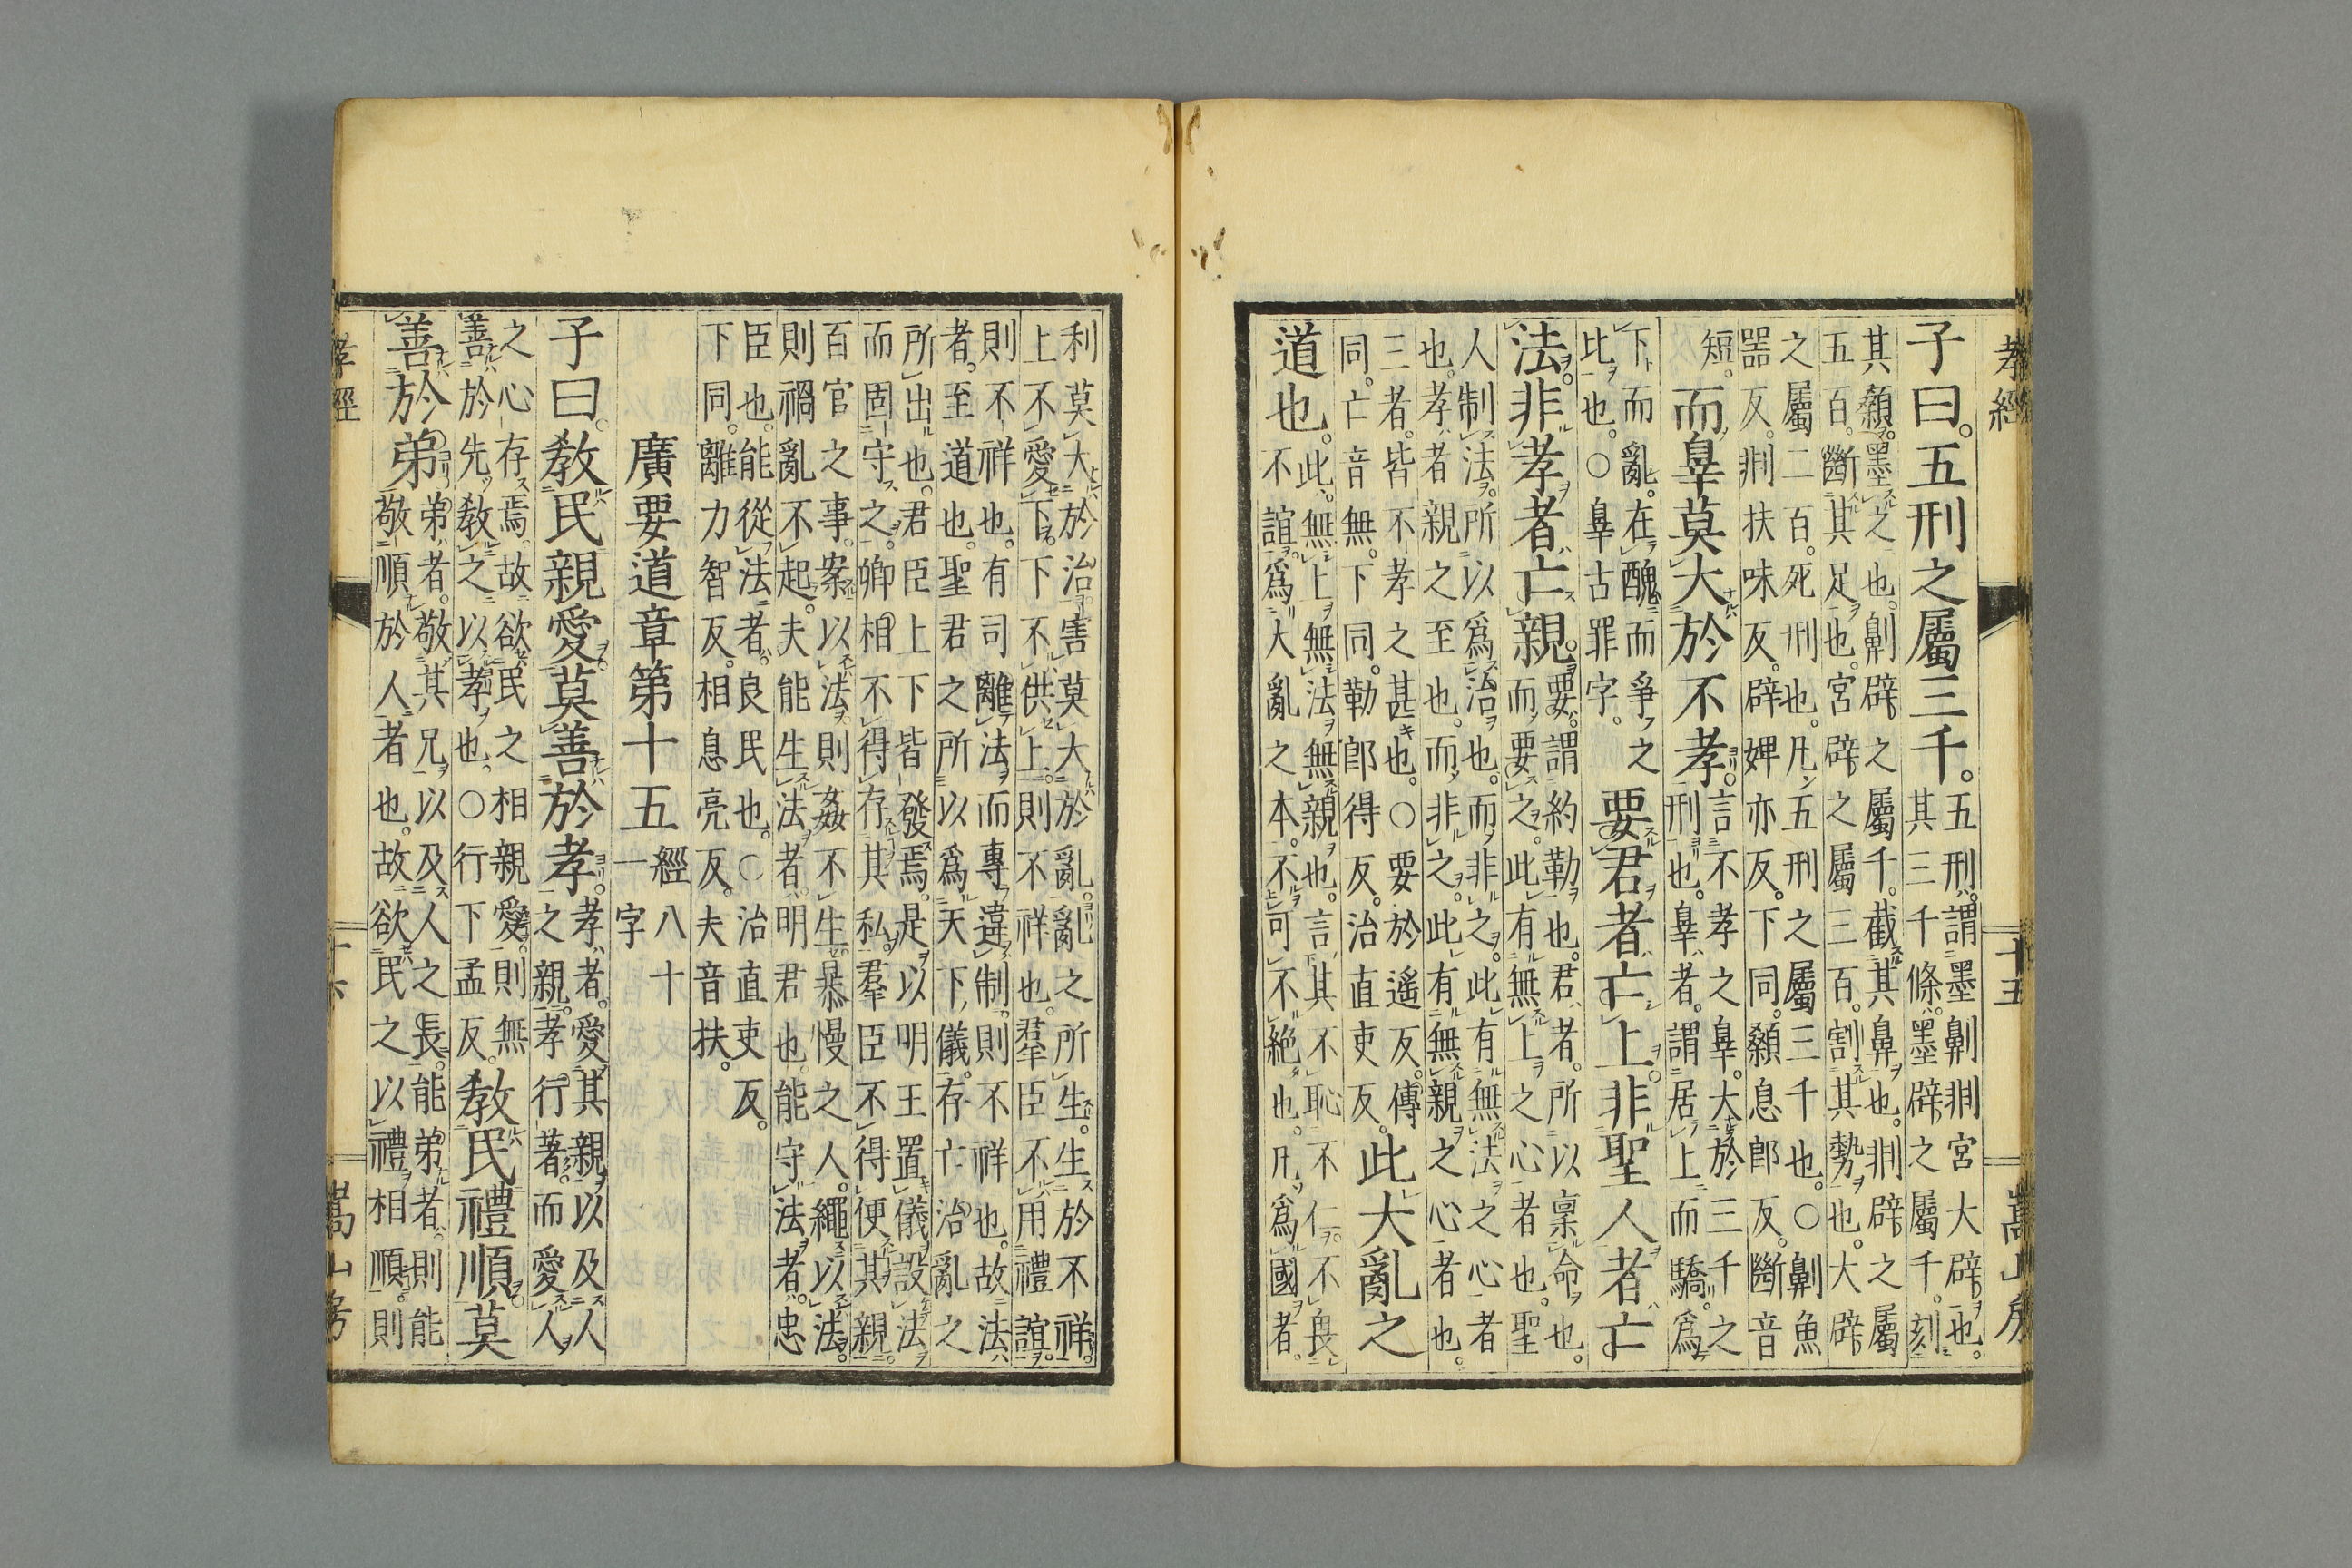 孝經 十五 嵩山房
子曰。五刑之屬三千。
五刑。謂墨劓剕宮大辟也。
其三千條。墨辟之屬千。刻
其顙。墨之也。劓辟之屬千。截其鼻也。剕辟之屬
五百。斷其足也。宮辟之屬三百。割其勢也。大辟
之屬二百。死刑也。凡五刑之屬三千也。○劓魚
器反。剕扶味反。辟婢亦反。下同。顙息郎反。斷音
短。
而辠莫大於不孝。
言不孝之辠。大於三千之
刑也。辠者。謂居上而驕。爲
下而亂。在醜而爭之
此也。○辠古罪字。
要君者亡上。非聖人者亡
法。非孝者亡親。
要。謂約勒也。君者。所以稟命也。
而要之。此有無上之心者也。聖
人制法。所以爲治也。而非之。此有無法之心者
也。孝者親之至也。而非之。此有無親之心者也。
三者。皆不孝之甚也。○要於遙反。傳
同。亡音無。下同。勒郎得反。治直吏反。
此大亂之
道也。
此。無上無法無親也。言其不恥不仁不畏
不誼。爲大亂之本。不可不絕也。凡爲國者。
利莫大於治。害莫大於亂。亂之所生。生於不祥。
上不愛下。下不供上。則不祥也。羣臣不用禮誼。
則不祥也。有司離法而專違制。則不祥也。故法
者。至道也。聖君之所以爲天下儀。存亡治亂之
所出也。君臣上下皆發焉。是以明王置儀設法
而固守之。卿相不得存其私。羣臣不得便其親。
百官之事。案以法。則姦不生。暴慢之人。繩以法。
則禍亂不起。夫能生法者。明君也。能守法者。忠
臣也。能從法者。良民也。○治直吏反。
下同。離力智反。相息亮反。夫音扶。
廣要道章第十五
經八十
一字
子曰。教民親愛莫善於孝。
孝者。愛其親以及人
之親。孝行著。而愛人
之心存焉。故欲民之相親愛。則無
善於先教之以孝也。○行下孟反。
教民禮順莫
善於弟。
弟者。敬其兄以及人之長。能弟者。則能
敬順於人者也。故欲民之以禮相順。則
孝經 十六 嵩山房